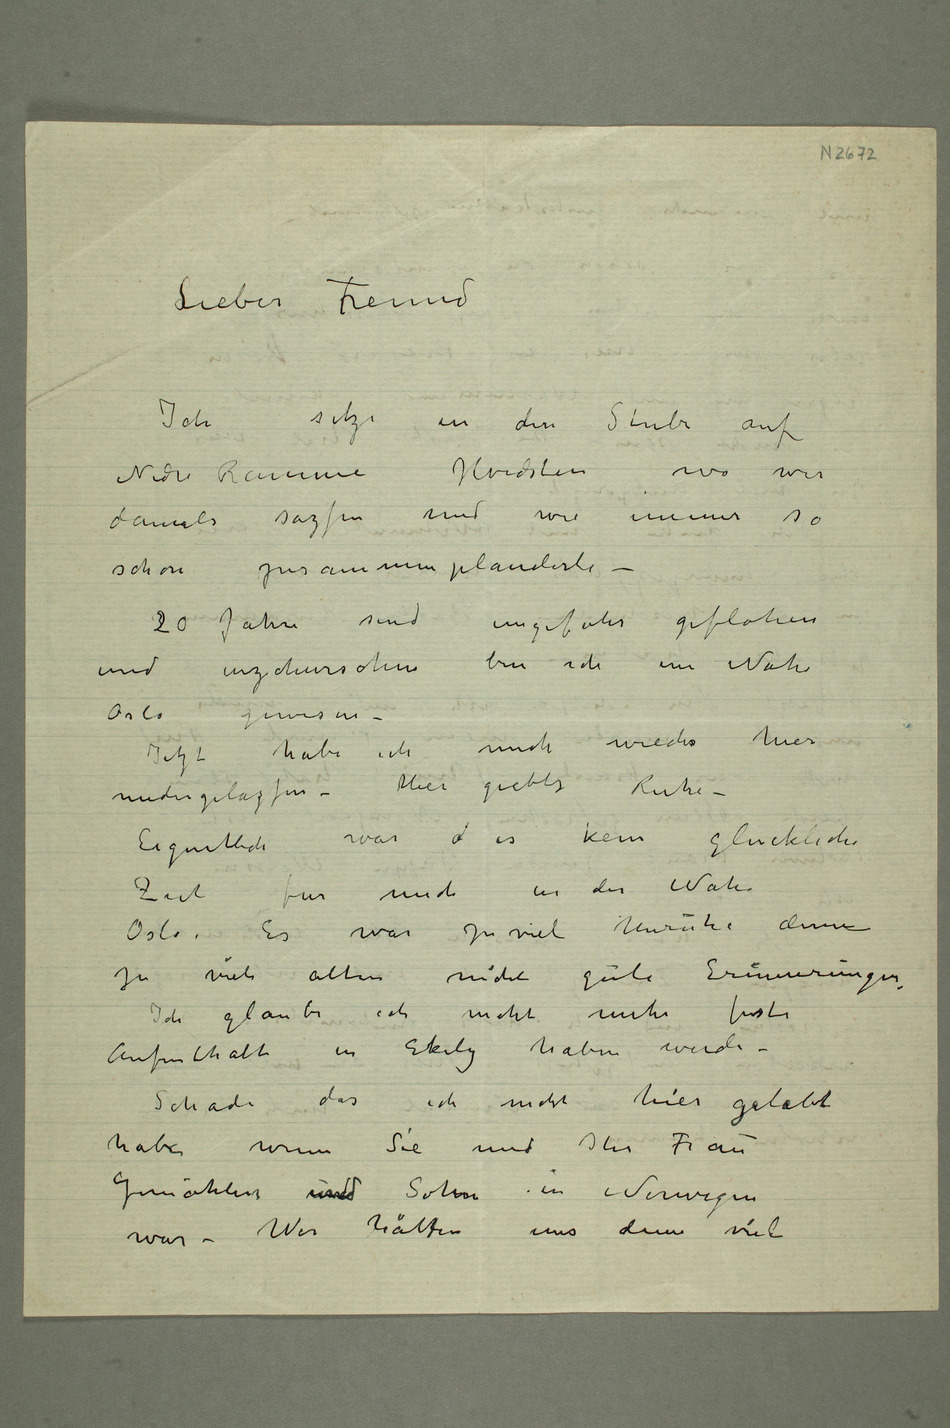 N 2672
Lieber Freund
Ich sitze in der Stube auf
Nedre Ramme Hvidsten wo wir
damals saszen und wie immer so
schön zusammenplauderte –
20 Jahre sind ungefähr geflohen
und inzchwischen bin ich im Nähe
Oslo gewesen –
Jetzt habe ich mich wieder hier
niedergelaszen – Hier giebts Ruhe –
Eigentlich war d es kein glückliche
Zeit für mich in der Nähe
Oslo. Es war zu viel Unruhe denn
zu viele alten nicht gute Erinnerungen,
Ich glaube ich nicht mehr feste
Aufenthalt in Ekely haben werde –
Schade das ich nicht hier gelebt
habe wenn Sie und Ihr Frau
Gemahlin und Sohn in Norwegen
war – Wir hätten uns denn viel